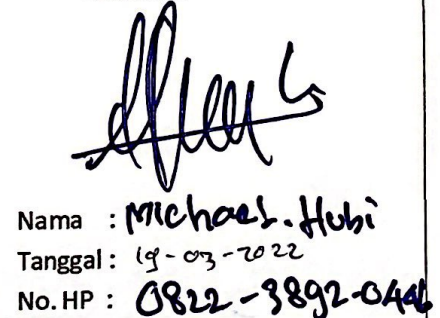 Nama : Michael. Hubi
Tanggal : 19-03-2022
No. HP : 0822-3892-0446